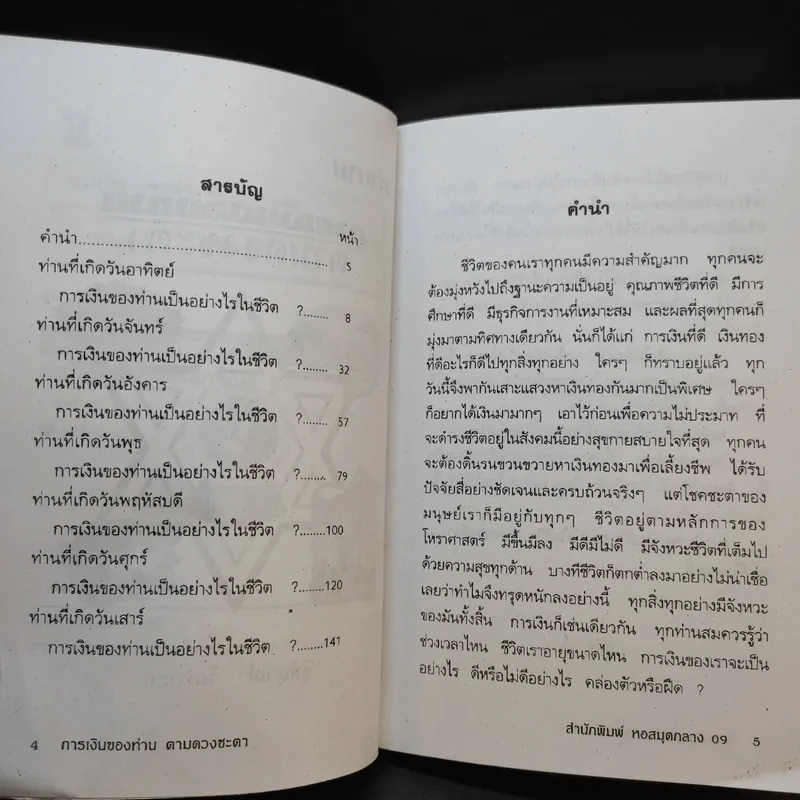 สารบัญ
หน้า
คำนำ.......................................................... 5
ท่านที่เกิดวันอาทิตย์
การเงินของท่านเป็นอย่างไรในชีวิต ?........ 8
ท่านที่เกิดวันจันทร์
การเงินของท่านเป็นอย่างไรในชีวิต ?........ 32
ท่านที่เกิดวันอังคาร
การเงินของท่านเป็นอย่างไรในชีวิต ?........ 57
ท่านที่เกิดวันพุธ
การเงินของท่านเป็นอย่างไรในชีวิต ?........ 79
ท่านที่เกิดวันพฤหัสบดี
การเงินของท่านเป็นอย่างไรในชีวิต ?........100
ท่านที่เกิดวันศุกร์
การเงินของท่านเป็นอย่างไรในชีวิต ?........120
ท่านที่เกิดวันเสาร์
การเงินของท่านเป็นอย่างไรในชีวิต ?........141
4 การเงินของท่าน ตามดวงชะตา
คำนำ
ชีวิตของคนเราทุกคนมีความสำคัญมาก ทุกคนจะ
ต้องมุ่งหวังไปถึงฐานะความเป็นอยู่ คุณภาพชีวิตที่ดี มีการ
ศึกษาที่ดี มีธุรกิจการงานที่เหมาะสม และผลที่สุดทุกคนก็
มุ่งมาตามทิศทางเดียวกัน นั่นก็ได้แก่ การเงินที่ดี เงินทอง
ที่ดีอะไรก็ดีไปทุกสิ่งทุกอย่าง ใครๆ ก็ทราบอยู่แล้ว ทุก
วันนี้จึงพากันเสาะแสวงหาเงินทองกันมากเป็นพิเศษ ใครๆ
ก็อยากได้เงินมามากๆ เอาไว้ก่อนเพื่อความไม่ประมาท ที่
จะดำรงชีวิตอยู่ในสังคมนี้อย่างสุขกายสบายใจที่สุด ทุกคน
จะต้องดิ้นรนขวนขวายหาเงินทองมาเพื่อเลี้ยงชีพ ได้รับ
ปัจจัยสี่อย่างชัดเจนและครบถ้วนจริงๆ แต่โชคชะตาของ
มนุษย์เราก็มีอยู่กับทุกๆ ชีวิตอยู่ตามหลักการของ
โหราศาสตร์ มีขึ้นมีลง มีดีมีไม่ดี มีจังหวะชีวิตที่เต็มไป
ด้วยความสุขทุกด้าน บางทีชีวิตก็ตกต่ำลงมาอย่างไม่น่าเชื่อ
เลยว่าทำไมจึงทรุดหนักลงอย่างนี้ ทุกสิ่งทุกอย่างมีจังหวะ
ของมันทั้งสิ้น การเงินก็เช่นเดียวกัน ทุกท่านสมควรรู้ว่า
ช่วงเวลาไหน ชีวิตเราอายุขนาดไหน การเงินของเราจะเป็น
อย่างไร ดีหรือไม่ดีอย่างไร คล่องตัวหรือฝืด ?
สำนักพิมพ์ หอสมุดกลาง 09 5